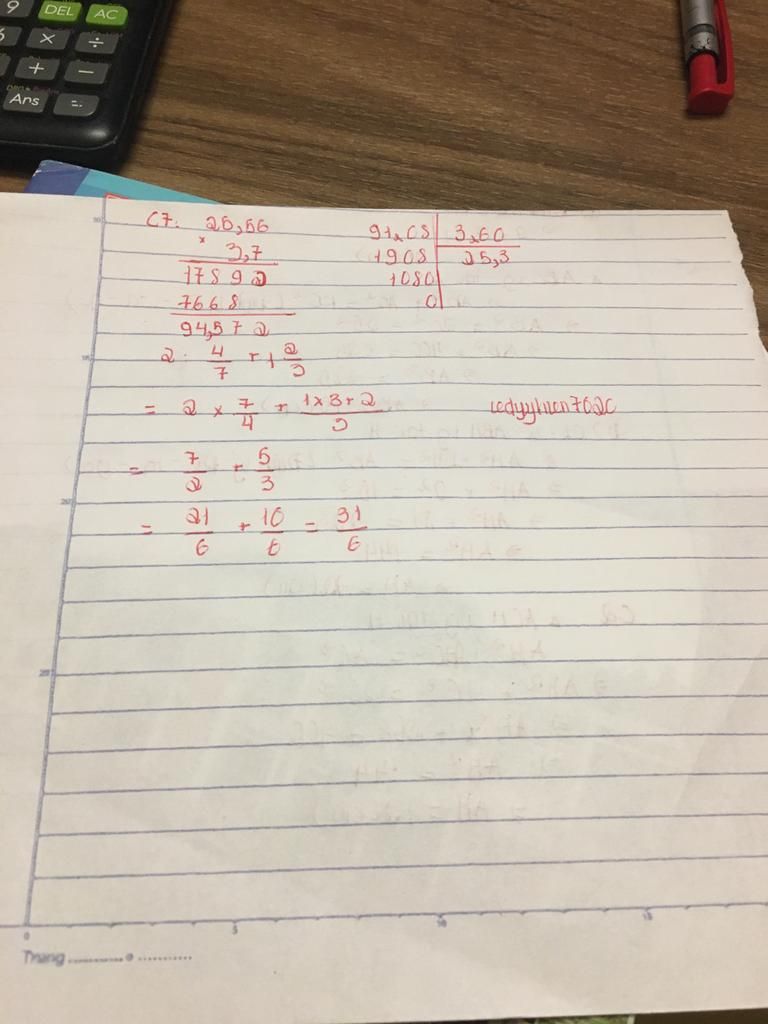 9 DEL AC
6 × ÷
+ −
Ans =
C7: 25,56
× 3,7
17892
7668
94,572
91,08 3,60
1908 25,3
1080
0
2 : 4/7 + 1 2/3
= 2 × 7/4 + (1 x 3 + 2)/3
ledyyhien702C
= 7/2 + 5/3
= 21/6 + 10/6 = 31/6
0 5 10 15
Tháng